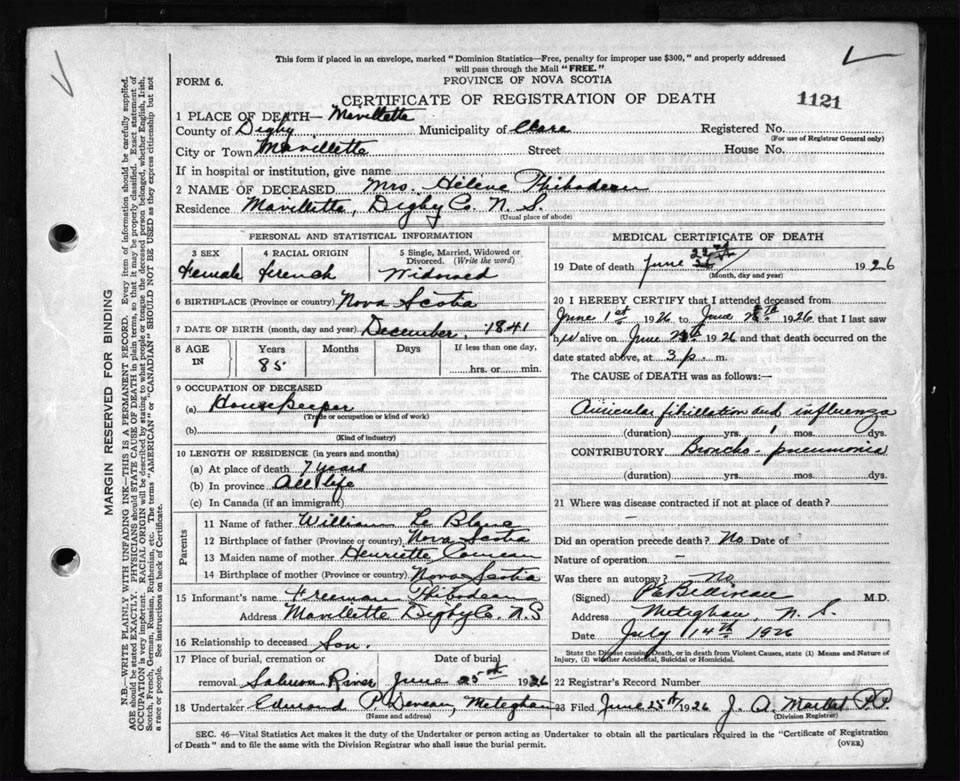 This form if placed in an envelope, marked "Dominion Statistics—Free, penalty for improper use $300," and properly addressed
will pass through the Mail "FREE."
FORM 6.
PROVINCE OF NOVA SCOTIA
CERTIFICATE OF REGISTRATION OF DEATH
1121
1 PLACE OF DEATH— Mavillette
County of Digby Municipality of Clare Registered No.
(For use of Registrar General only)
City or Town Mavillette Street House No.
If in hospital or institution, give name
2 NAME OF DECEASED Mrs. Hélène Thibodeau
Residence Mavillette, Digby Co. N. S.
(Usual place of abode)
PERSONAL AND STATISTICAL INFORMATION
3 SEX Female
4 RACIAL ORIGIN French
5 Single, Married, Widowed or Divorced. (Write the word) Widowed
6 BIRTHPLACE (Province or country) Nova Scotia
7 DATE OF BIRTH (month, day and year) December, 1841
8 AGE IN Years Months Days If less than one day,
85 hrs. or min.
9 OCCUPATION OF DECEASED
(a) Housekeeper
(Trade or occupation or kind of work)
(b)
(Kind of industry)
10 LENGTH OF RESIDENCE (in years and months)
(a) At place of death 7 years
(b) In province All life
(c) In Canada (if an immigrant)
Parents
11 Name of father William Le Blanc
12 Birthplace of father (Province or country) Nova Scotia
13 Maiden name of mother Henriette Comeau
14 Birthplace of mother (Province or country) Nova Scotia
15 Informant's name Freeman Thibodeau
Address Mavillette Digby Co. N.S
16 Relationship to deceased Son.
17 Place of burial, cremation or Date of burial
removal Salmon River June 25th 1926
18 Undertaker Edmond P. Deveau, Meteghan
(Name and address)
MEDICAL CERTIFICATE OF DEATH
19 Date of death June 22nd 1926
(Month, day and year)
20 I HEREBY CERTIFY that I attended deceased from
June 1st 1926 to June 1926 that I last saw
h alive on June 1926 and that death occurred on
date stated above, at 3 p. m.
The CAUSE of DEATH was as follows:—
Auricular fibillation and influenza
(duration) yrs. 1 mos. dys.
CONTRIBUTORY Broncho-pneumonia
(duration) yrs. mos. dys.
21 Where was disease contracted if not at place of death?
—
Did an operation precede death? No Date of
Nature of operation —
Was there an autopsy? No
(Signed) M.D.
Address Meteghan, N. S.
Date July 14th 1926
State the Disease causing Death, or in death from Violent Causes, state (1) Means and Nature of
Injury, (2) whether Accidental, Suicidal or Homicidal.
22 Registrar's Record Number
23 Filed June 25th 1926 J. A. P.P.
(Division Registrar)
SEC. 46—Vital Statistics Act makes it the duty of the Undertaker or person acting as Undertaker to obtain all the particulars required in the "Certificate of Registration
of Death" and to file the same with the Division Registrar who shall issue the burial permit.
(OVER)
MARGIN RESERVED FOR BINDING
N.B.—WRITE PLAINLY WITH UNFADING INK—THIS IS A PERMANENT RECORD. Every item of information should be carefully supplied.
AGE should be stated EXACTLY. PHYSICIANS should STATE CAUSE OF DEATH in plain terms, so that it may be properly classified. Exact statement of
OCCUPATION is very important. RACIAL ORIGIN will be described by stating to what people or tongue the deceased person belonged, whether English, Irish,
Scotch, French, German, Russian, Ruthenian, etc. The terms "AMERICAN" or "CANADIAN" SHOULD NOT BE USED as they express citizenship but not
a race or people. See instructions on back of Certificate.